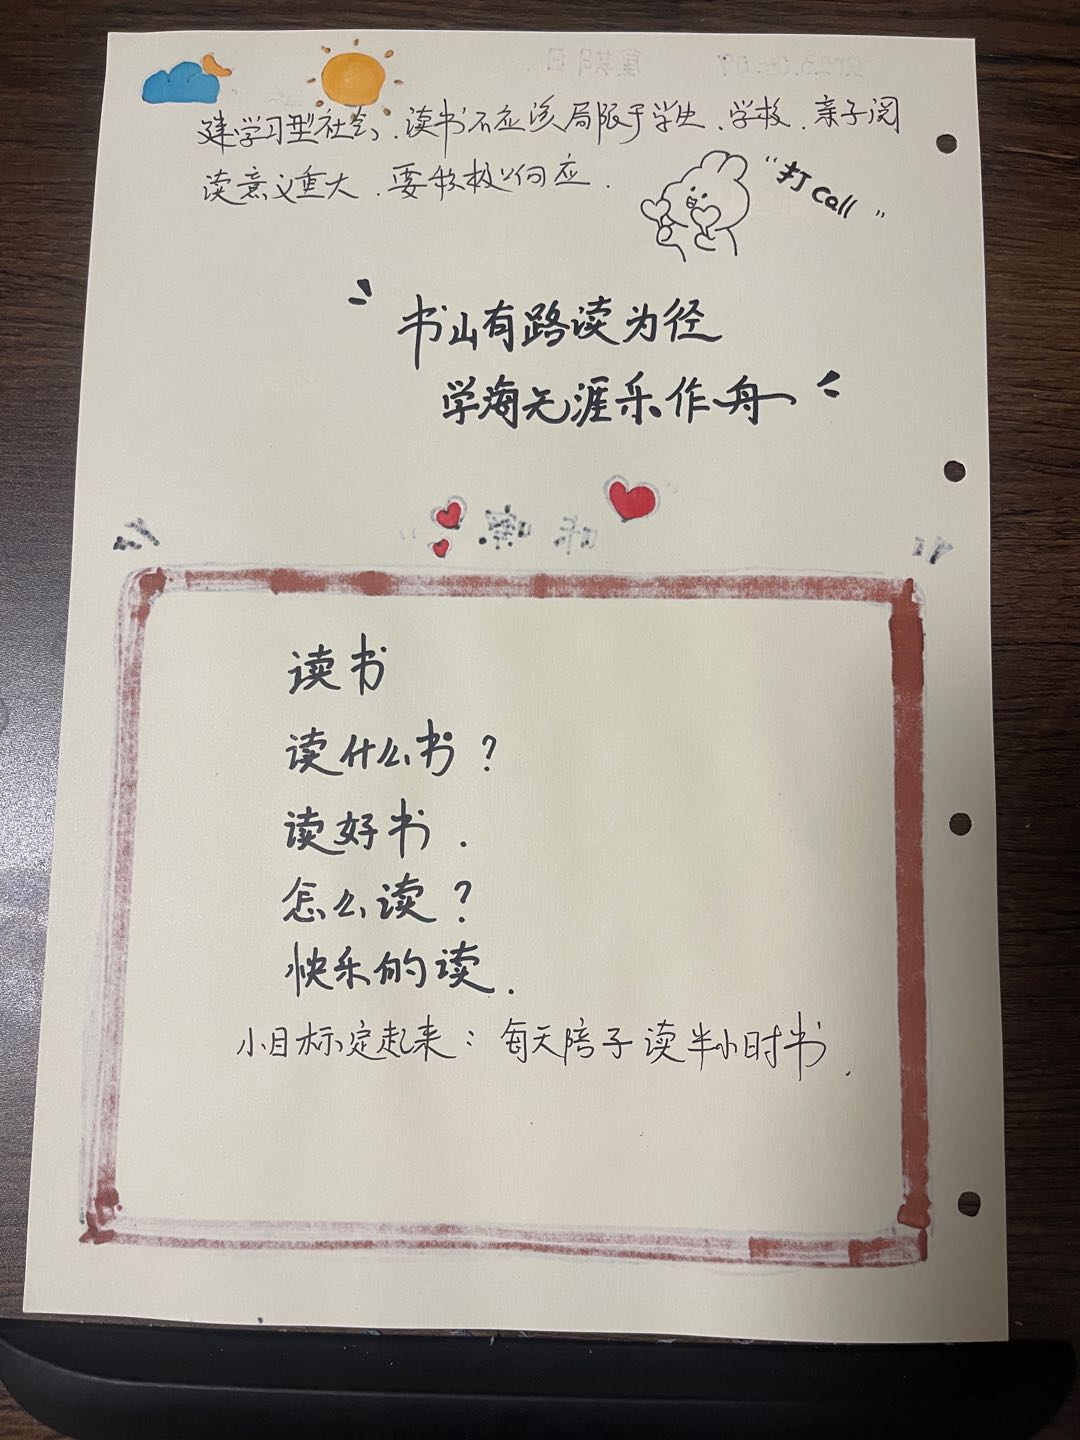 建学习型社会、读书不应该局限于学生、学校、亲子阅
读意义重大、要积极响应.
"打call"
"书山有路读为径
学海无涯乐作舟"
读书
读什么书?
读好书.
怎么读?
快乐的读.
小目标定起来: 每天陪子读半小时书.